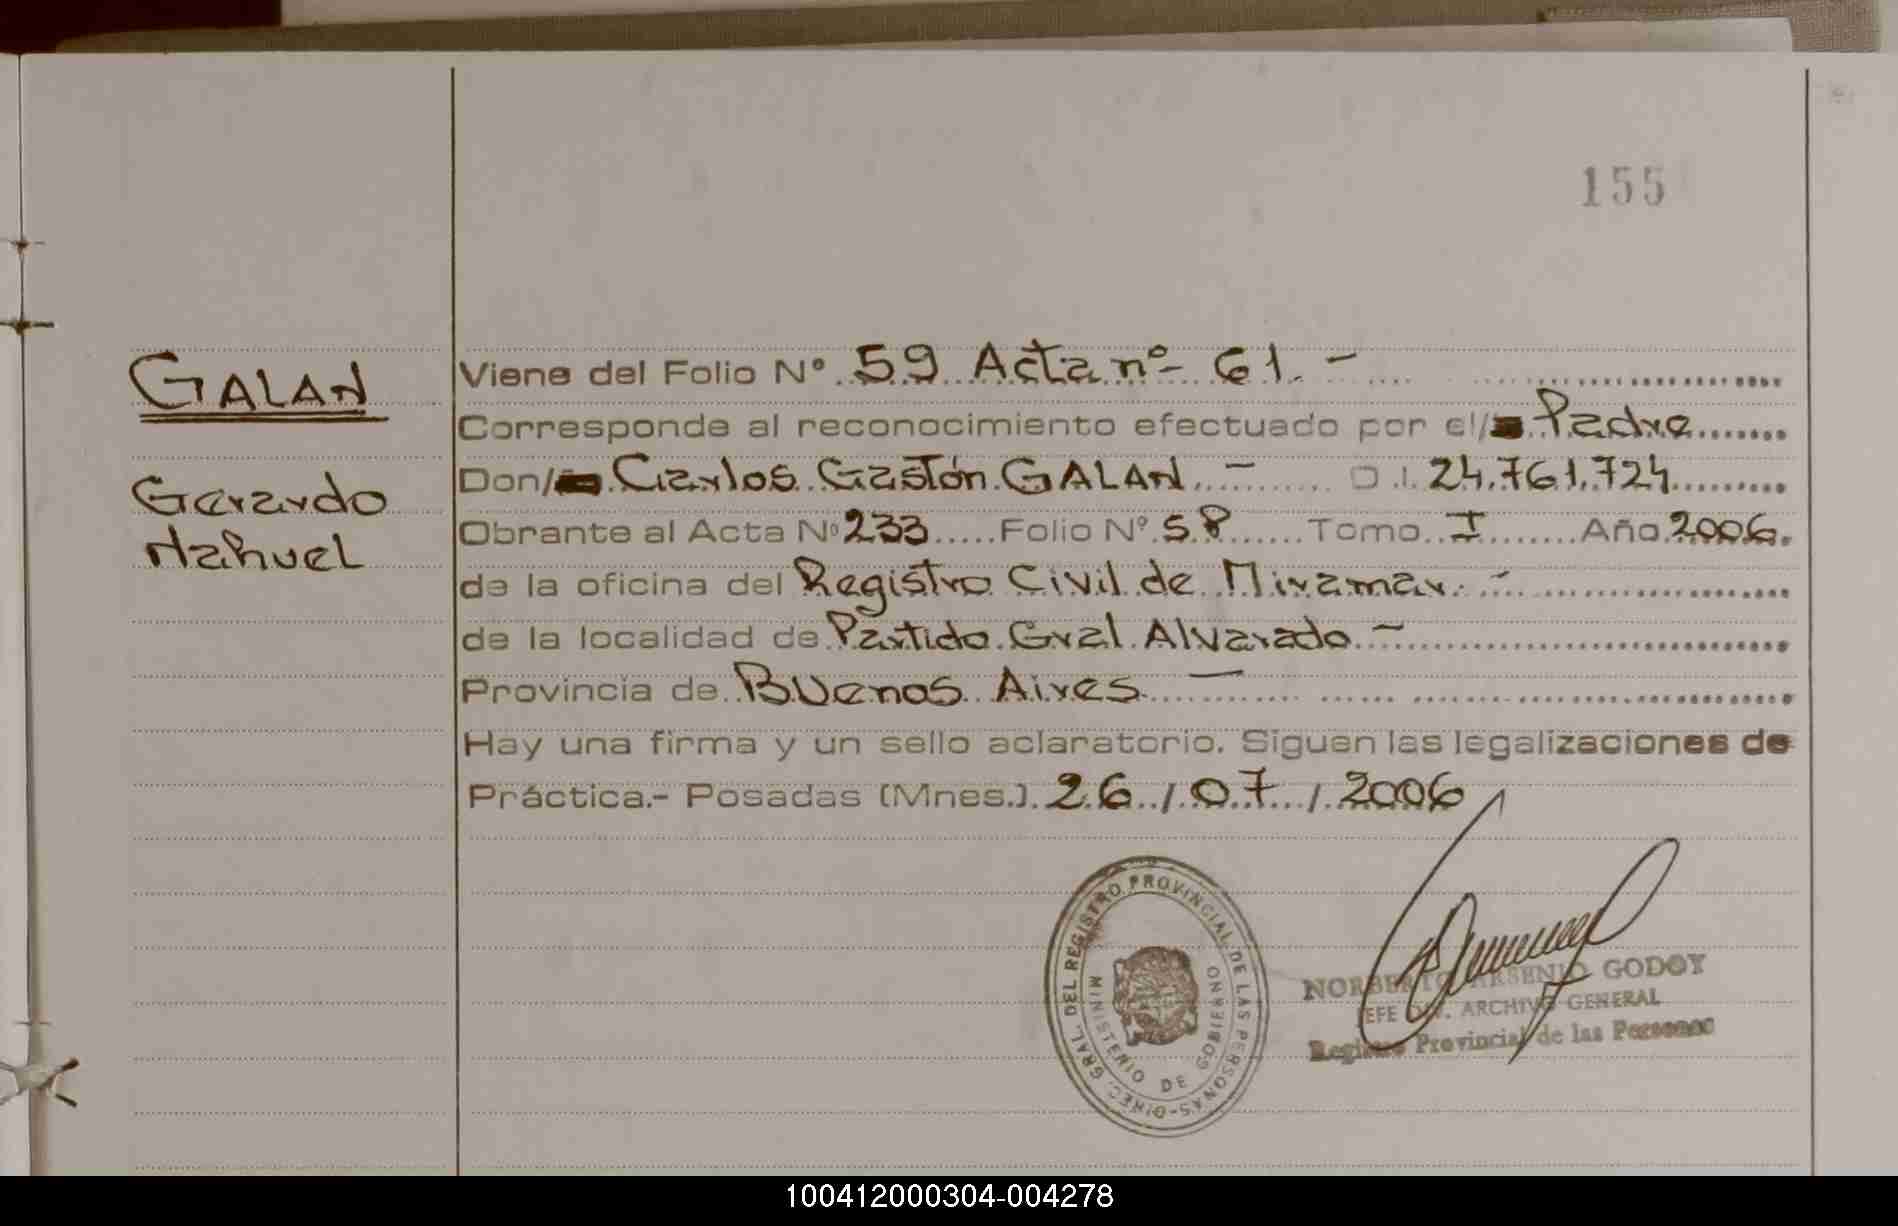 155
GALAN
Gerardo
Nahuel
Viene del Folio Nº 59 Acta nº- 61. -
Corresponde al reconocimiento efectuado por el/ Padre
Don/ Carlos Gastón GALAN. - D.I. 24.761.724
Obrante al Acta Nº 233 Folio Nº 58 Tomo I Año 2006.
de la oficina del Registro Civil de Miramar. -
de la localidad de Partido Gral Alvarado -
Provincia de Buenos Aires. -
Hay una firma y un sello aclaratorio. Siguen las legalizaciones de
Práctica.- Posadas (Mnes.). 26 / 07 / 2006
DIREC. GRAL. DEL REGISTRO PROVINCIAL DE LAS PERSONAS-
MINISTERIO DE GOBIERNO
NORBERTO ARSENIO GODOY
JEFE DIV. ARCHIVO GENERAL
Registro Provincial de las Personas
100412000304-004278